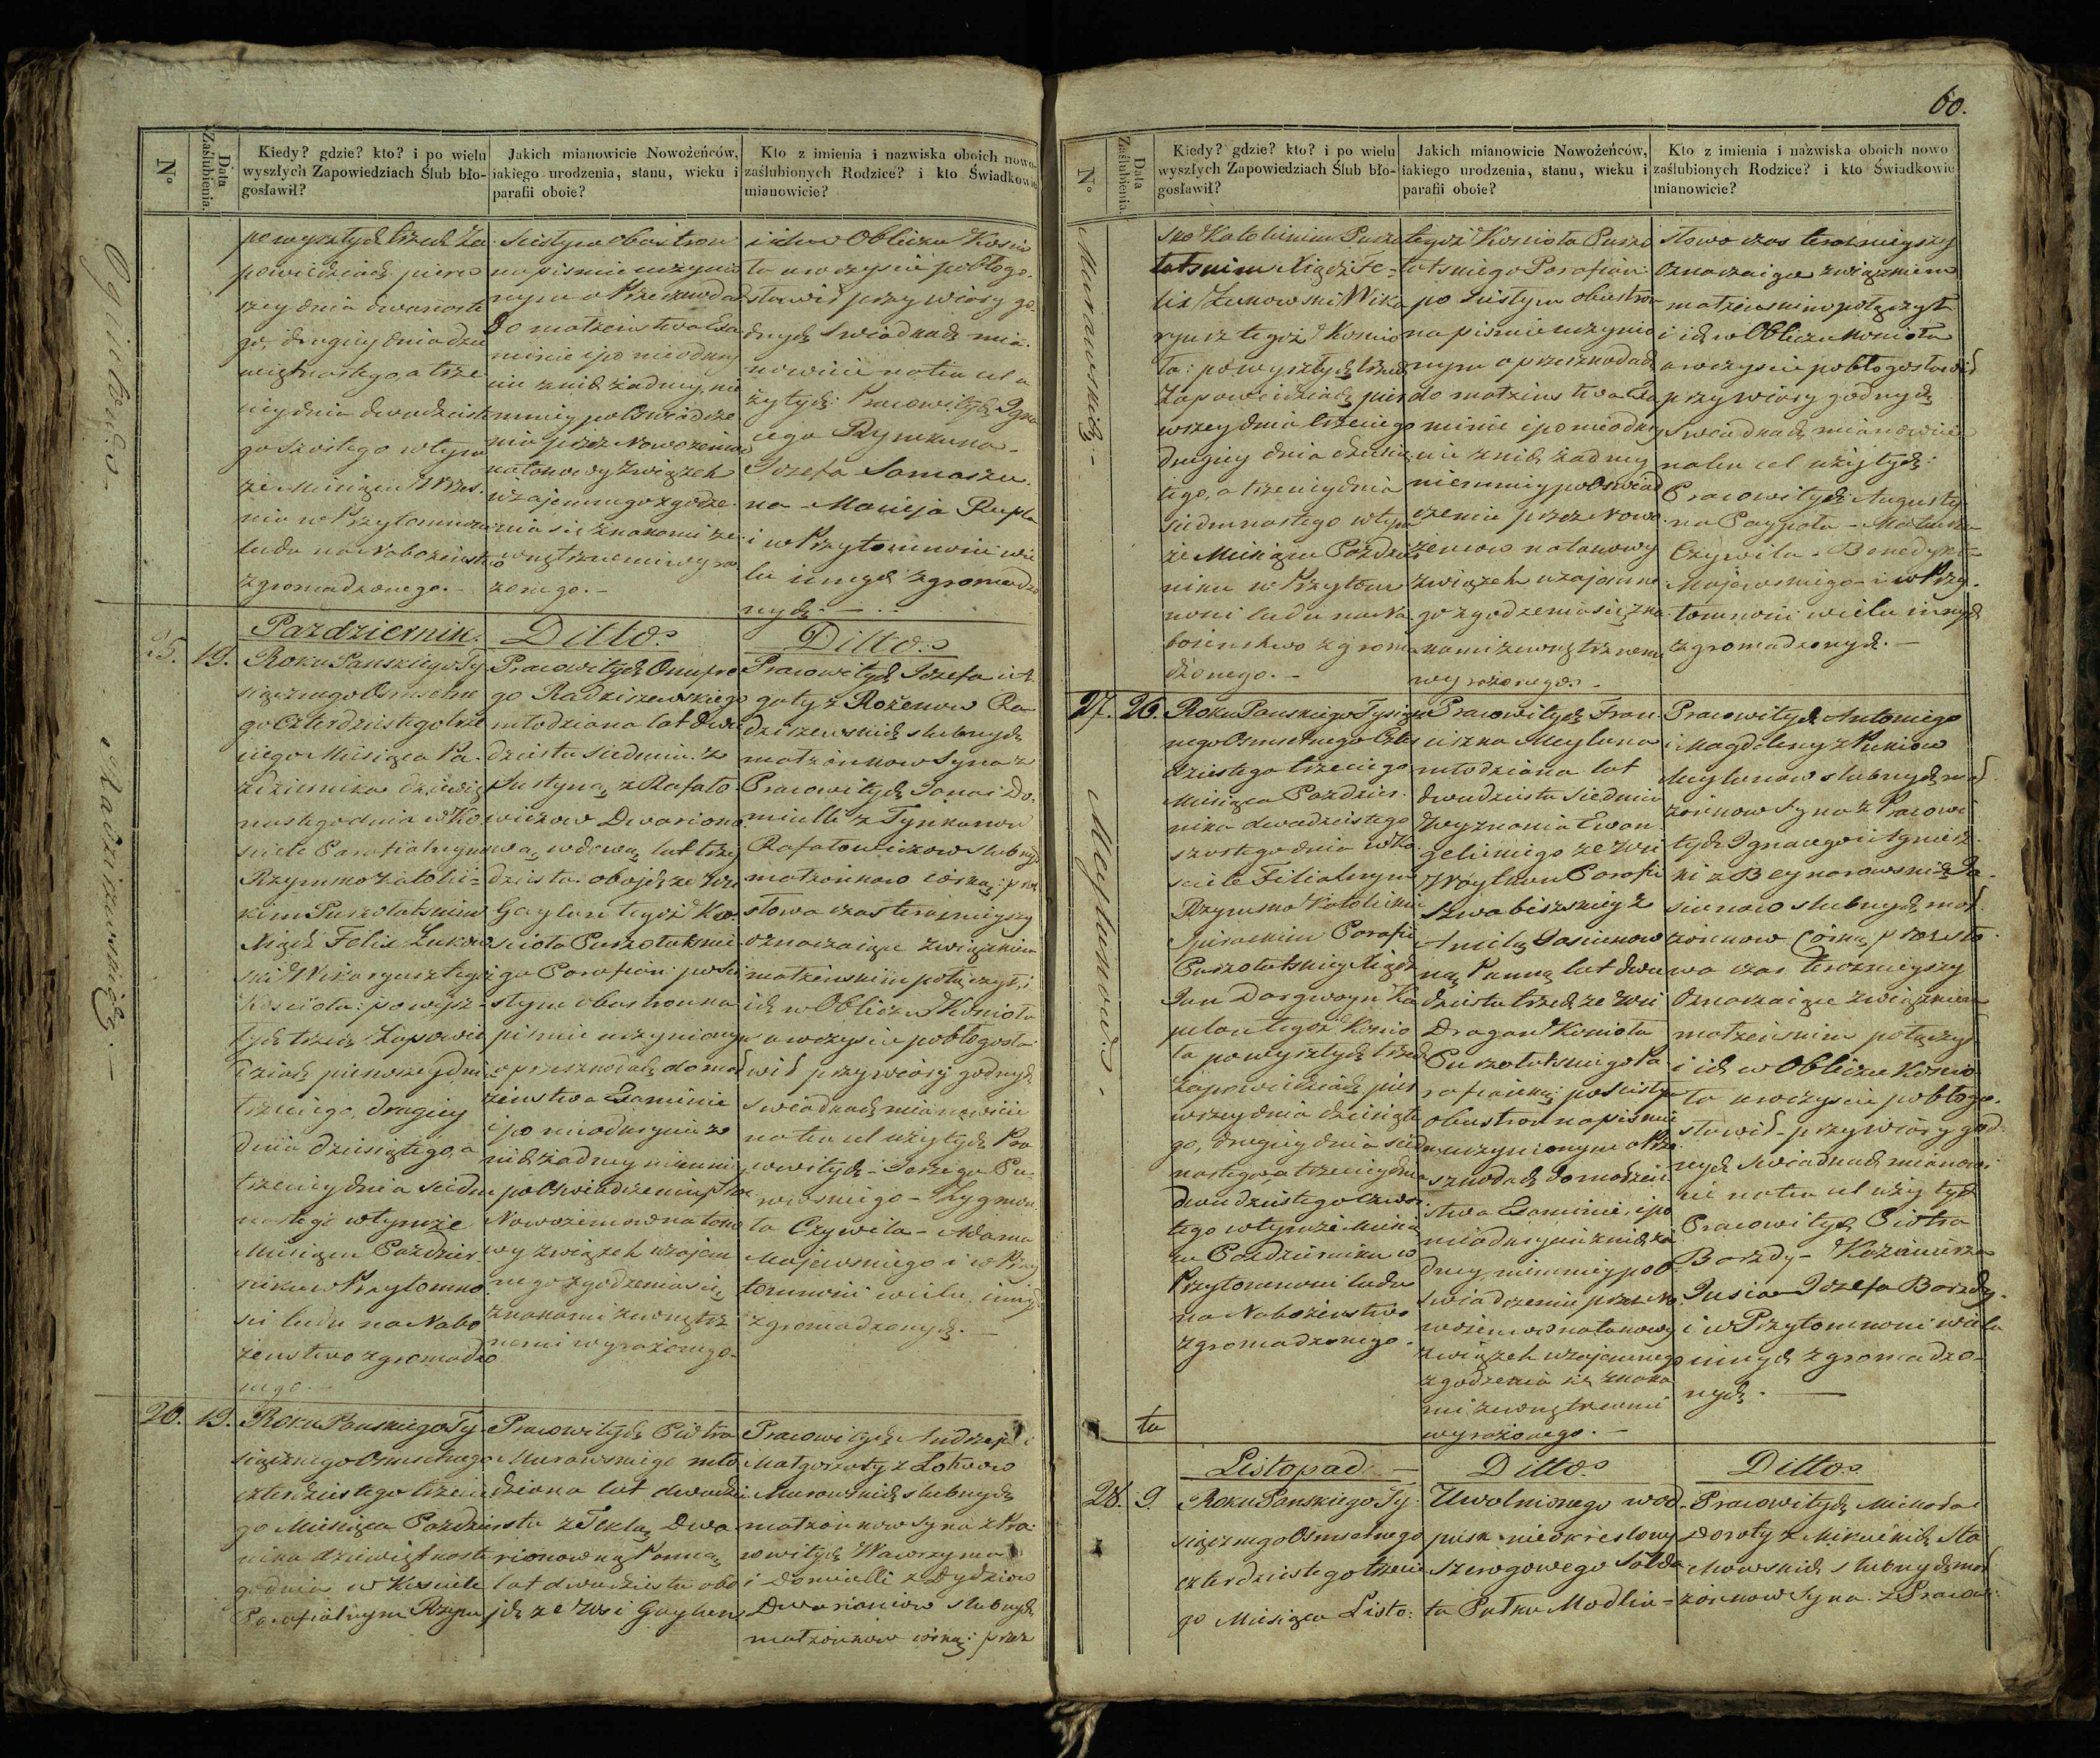 60.
N°
Data Zaślubienia.
Kiedy? gdzie? kto? i po wielu
wyszłych Zapowiedziach Ślub bło-
gosławił?
Jakich mianowicie Nowożeńców,
iakiego urodzenia, stanu, wieku i
parafii oboie?
Kto z imienia i nazwiska oboich nowo-
zaślubionych Rodzice? i kto Świadkowie
mianowicie?
powyszłych trzech Za
powiedziach pierw
szey dnia dwunaste
go, drugiey dnia dzie
więtnastego, a trze
ciey dnia dwudzieste
go szostego w tym
że Miesiącu Wrześ.
niu w Przytomnosci
ludu na Nabożeństwo
zgromadzonego.-
scistym obustron
na pismie uczynio
nym o Przeszkodach
do małżeństwa Exa
minie i po nieodkry
ciu z nich żadney, nie
mniey po Oświadcze
niu przez Nowożeńców
na takowy Związek
wzajemnego zgodze
nia się Znakami ze
wnętrznemi wyra
żonego.-
i ich w Obliczu Kościo
ła uroczyście pobłogo.
sławił przy wiary go.
dnych Swiadkach mia.
nowicie na ten cel u
żytych: Pracowitych Igna
cego Rymkuna-
Jozefa Samaszu
na - Macieja Rupla
i w Przytomności wie
lu innych zgromadzo
nych.-
Pazdziernik. Ditto. Ditto.
25. 19.
Roku Panskiego Ty
siącznego Osmsetne
go Czterdziestego trze
ciego Miesiąca Pa.
zdziernika dziewięt
nastego dnia w Ko.
sciele Parafialnym
Rzymsko Katolic=
kim Puszołatskim
Xiądz Felix Żukow
ski Wikaryusz tegoż
Kościoła: po wysz-
łych trzech Zapowie
dziach pierwszey dnia
trzeciego, drugiey
dnia dziesiątego, a
trzeciey dnia siedm
nastego w tymże
Miesiącu Paździer.
niku w Przytomno
sci ludu na Nabo
żeństwo zgromadzo
nego.-
Pracowitych Onufre
go Radziszewskiego
młodziana lat dwa
dziescia siedmiu z
Justyną z Rafało
wiczow Dwariono
wą, wdową, lat trzy
dziestu obojch ze Wsi
Gaylun tegoż Ko.
scioła Puszołatskie
go Parafian: po sci
stym obustron na
pismie uczynionym
o przeszkodach do mał
żeństwa Examinie
i po nieodkryciu z
nich żadney niemniey
po Oświadczeniu przez
Nowożeńcow na tako
wy związek wzajem
nego zgodzenia się
znakami zewnętrz
nemi wyrażonego-
Pracowitych Jozefa i A.
gaty z Rożenow Ra
dziszewskich slubnych
małżonkow Syna z
Pracowitych Jana i Do.
micelli z Tynkunow
Rafałowiczow slubnych
małżonkow corką: przez
słowa czas teraźnieyszy
oznaczające związkiem
małżeńskim połączył, i
ich w Obliczu Kościoła
uroczyscie pobłogosła
wił przy wiary godnych
swiadkach mianowicie
na ten cel użytych Pra
cowitych: Jerzego Pu.
Zygmun
ta Czywila- Adama
Majewskiego i w Przy
tomności wielu innych
zgromadzonych.-
26. 19.
Roku Panskiego Ty
siącznego Osmsetnego
czterdziestego trzecie
go Miesiąca Pazdzier
nika dziewiętnaste
go dnia w Kosciele
Parafialnym Rzym
Pracowitych Piotra
Murawskiego mło
dziana lat dwudzie
stu z Teklą Dwa
rionowną Panną,
lat dwudziestu obo
jch ze Wsi Gaylun
Pracowitych Andrzeja i
Małgorzaty z
Murawskich slubnych
małżonkow Syna z Pra:
cowitych Wawrzynca
i Domicelli z Dydziow
Dwarionow slubnych
małżonkow corką: przez
Radziszewskich.-
N°
Data Zaślubienia.
Kiedy? gdzie? kto? i po wielu
wyszłych Zapowiedziach Ślub bło-
gosławił?
Jakich mianowicie Nowożeńców,
iakiego urodzenia, stanu, wieku i
parafii oboie?
Kto z imienia i nazwiska oboich nowo
zaślubionych Rodzice? i kto Świadkowie
mianowicie?
Murawskich.-
sko Katolickim Puszo
łatskim Xiądz Fe=
lix Żukowski Wika
ryusz tegoż Kościo
ła: po wyszłych trzech
Zapowiedziach pier
wszey dnia trzeciego
drugiey dnia dziesią
tego, a trzeciey dnia
siedmnastego w tym
że Miesiącu Paździer
niku w Przytom
nosci ludu na Na
bożeństwo zgroma
dzonego.-
tegoż Kościoła Puszo
łatskiego Parafian:
po scistym obustron
na pismie uczynio
nym o przeszkodach
do małżeństwa Exa
minie i po nieodkry
ciu z nich żadney
niemniey po Oświad
czeniu przez Nowo.
żeńcow na takowy
związek wzajemne
go zgodzenia się zna
kami zewnętrznemi
wyrażonego.-
słowa czas teraźnieyszy
oznaczające związkiem
małżeńskim połączył
i ich w Obliczu Kościoła
uroczyscie pobłogosławił
przy wiary godnych
Swiadkach mianowicie
na ten cel użytych:
Pracowitych Augusty
na Paypoła - Mateusza
Czywila - Benedykta
Majewskiego i w Przy.
tomnosci wielu innych
zgromadzonych.-
27. 26.
Meylunow.-
Roku Panskiego Tysiącz
nego Osmsetnego Czter
dziestego trzeciego
Miesiąca Pazdzier.
nika dwudziestego
szostego dnia w Ko.
sciele Filialnym
Rzymsko Katolickim
Parafii
Puszołatskiey Xiądz
Jan Dorgwoyn Ka
pelan tegoż Kościo
ła po wyszłych trzech
Zapowiedziach pier
wszey dnia dziesiąte
go, drugiey dnia siedm
nastego, a trzeciey dnia
dwudziestego czwar
tego w tymże Miesią
cu Pazdzierniku w
Przytomnosci ludu
na Nabożeństwo
zgromadzonego.
Pracowitych Fran
ciszka Meyluna
młodziana lat
dwudziestu siedmiu
Wyznania Ewan
gelickiego ze wsi
Woytkun Parafii
Szwabiszskiey z
Anielą Jasienow
ną Panną lat dwu
dziestu trzech ze wsi
Dragan Kościoła
Puszołatskiego Pa
rafianką: po scistym
obustron na pismie
uczynionym o Prze
szkodach do małżeń
stwa Examinie, i po
nieodkryciu z nich ża
dney, niemniey po O
swiadczeniu przez No
wożeńcow na takowy
związek wzajemnego
zgodzenia się znaka
mi zewnętrznemi
wyrażonego.-
Pracowitych Antoniego
i Magdaleny z
Meylunow slubnych mał
żonkow Syna z Pracowi
tych Ignacego i Agniesz.
ki z Beynarowskich Ja.
sienow slubnych mał.
żonkow Corką, przez sło
wa czas teraźnieyszy
oznaczające związkiem
małżeńskim połączył
i ich w Obliczu Kościo
ła uroczyscie pobłogo.
sławił- przy wiary god.
nych Swiadkach mianowi
cie na ten cel użytych
Pracowitych Piotra
Borzdy- Kazimierza
Jusia Jozefa Borzdy.
i w Przytomnosci wielu
innych zgromadzo-
nych.-
ta
Listopad - Ditto. Ditto.
28. 9.
Roku Panskiego Ty.
siącznego Osmsetnego
czterdziestego trzecie
go Miesiąca Listo:
Uwolnionego w od
pusk nieokreslony
szeregowego Sołda
ta Pułku Modlin=
Pracowitych Michała i
Doroty z Mikuckich Sta
chowskich slubnych mał
żonkow Syna. z Pracow: